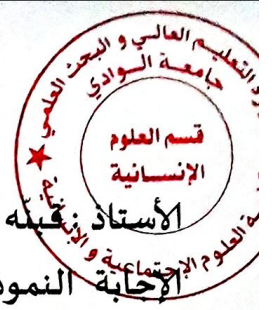 وزارة التعليم العالي و البحث العلمي
جامعة الوادي
قسم العلوم
الإنسانية
العلوم الإجتماعية و الإنسانية
الأستاذ : قبنه
الإجابة النمو